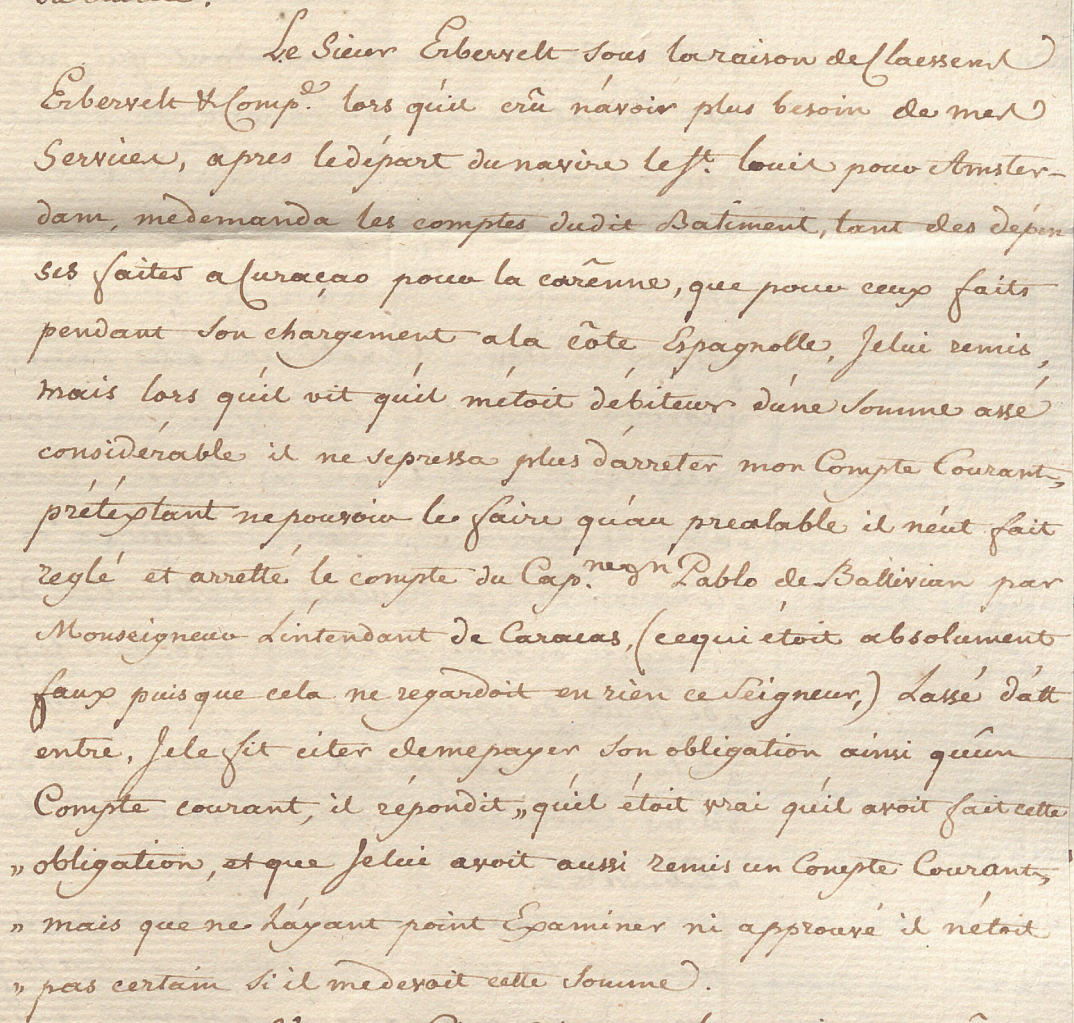 Le Sieur Erbervelt sous la raison de Claessens
Erbervelt & Comp.e lors qu'il crû n'avoir plus besoin de mes
Services, apres le départ du navire le St. louis pour Amster-
dam, me demanda les comptes dudit Batîment, tant des dépen
ses faites a Curaçao pour la carênne, que pour ceux faits
pendant son chargement a la côte Espagnolle, Je lui remis,
mais lors qu'il vit qu'il m'étoit débiteur d'une somme assé
considérable il ne se pressa plus d'arreter mon Compte Courant,
prétéxtant ne pouvoir le faire qu'au prealable il n'éut fait
reglé et arretté le compte du Cap.ne dn Pablo de Ballivian par
Monseigneur L'intendant de Caracas, (ce qui étoit absolument
faux puis que cela ne regardoit en rien ce Seigneur,) Lassé d'att
entre, Je le fit citer de me payer son obligation ainsi qu'un
Compte courant, il répondit „ qu'il étoit vrai qu'il avoit fait cette
„ obligation, et que Je lui avoit aussi remis un Compte Courant,
„ mais que ne L'áyant point Examiner ni approuvé il n'étoit
„ pas certain si il me devoit cette somme.